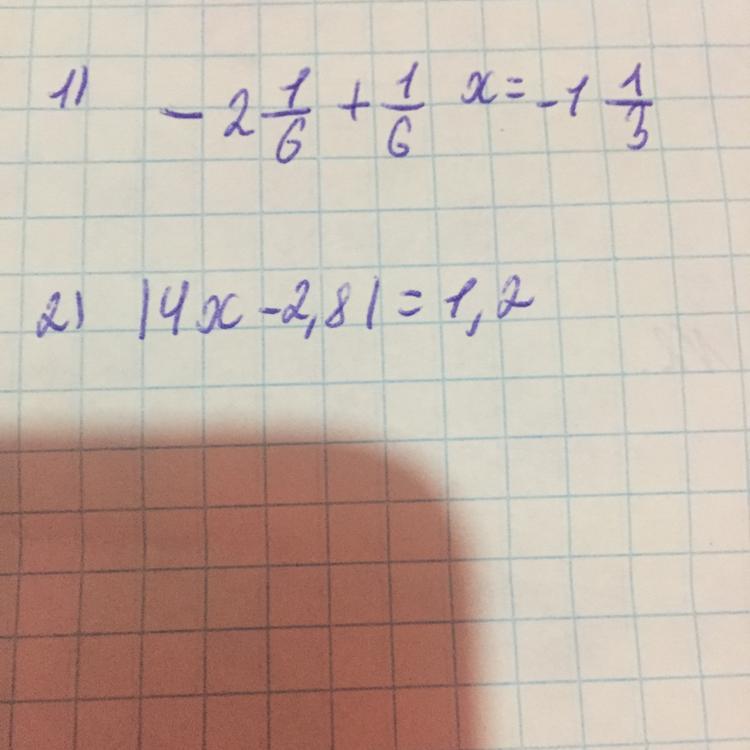 1) - 2 1/6 + 1/6 x = -1 1/3
2) |4x - 2,8| = 1,2